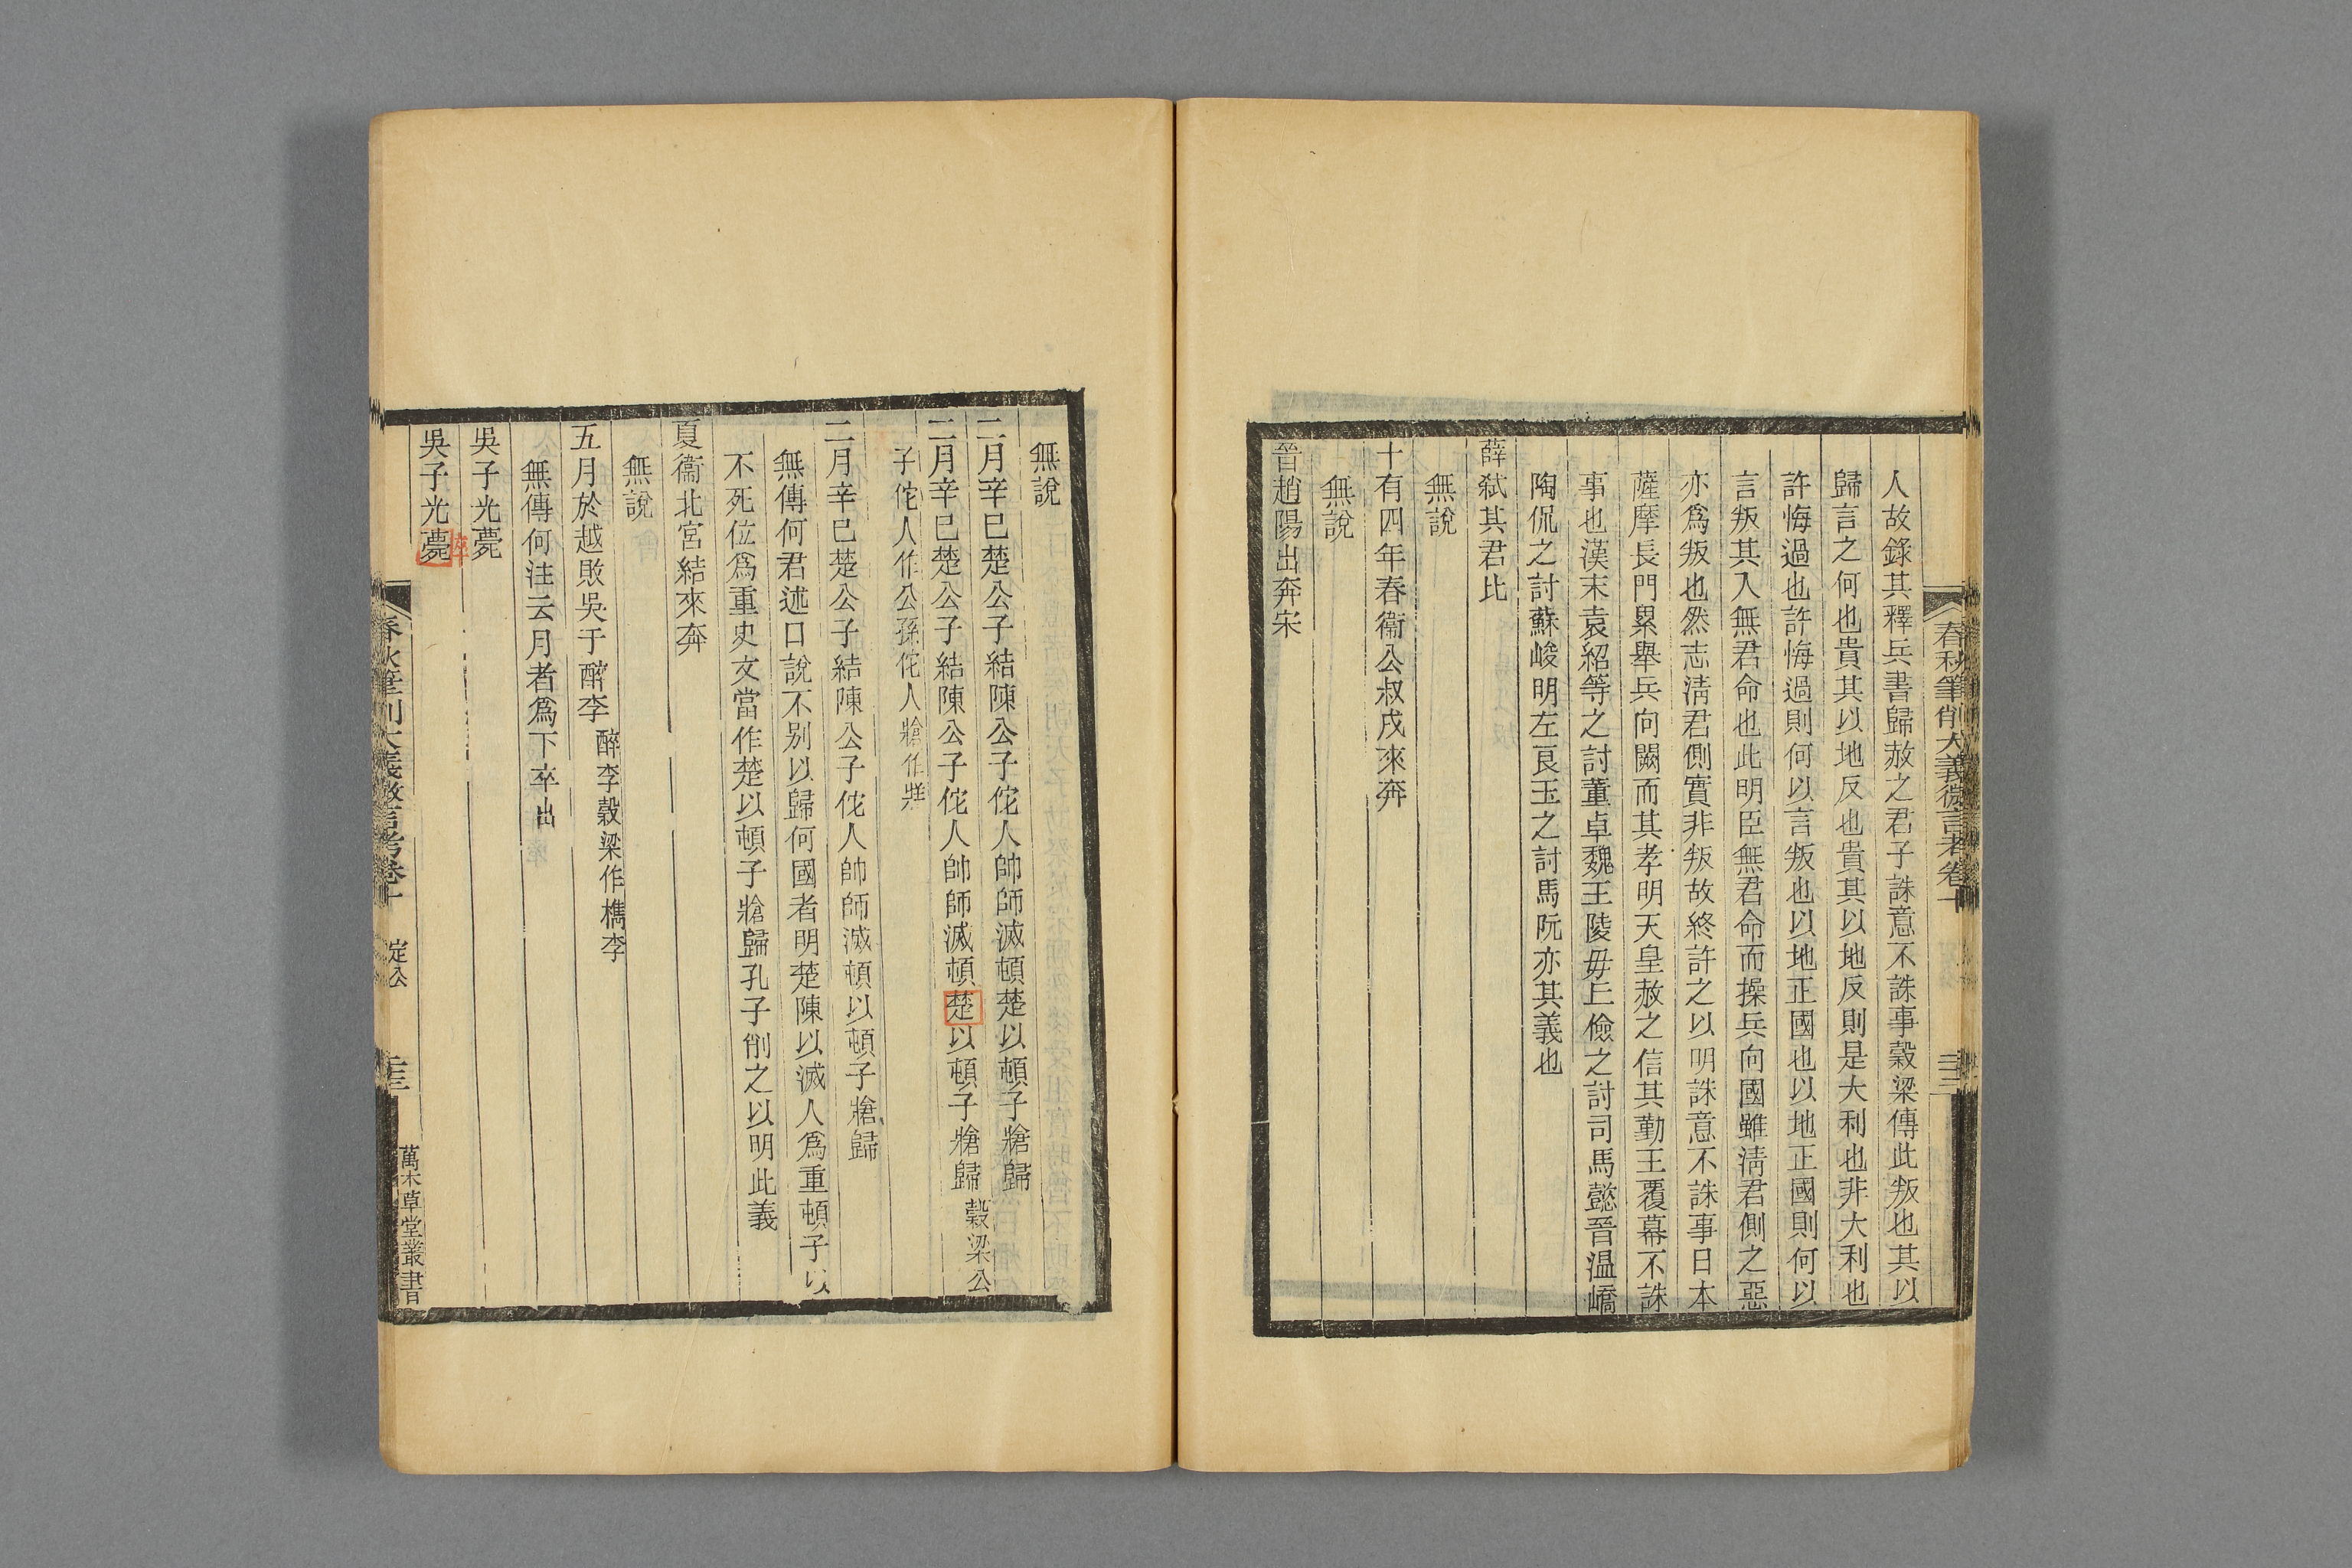 春秋筆削大義微言考卷十
三三
人故錄其釋兵書歸赦之君子誅意不誅事穀梁傳此叛也其以
歸言之何也貴其以地反也貴其以地反則是大利也非大利也
許悔過也許悔過則何以言叛也以地正國也以地正國則何以
言叛其入無君命也此明臣無君命而操兵向國雖淸君側之惡
亦爲叛也然志淸君側實非叛故終許之以明誅意不誅事日本
薩摩長門累舉兵向闕而其孝明天皇赦之信其勤王覆幕不誅
事也漢末袁紹等之討董卓魏王陵毋丘儉之討司馬懿晉溫嶠
陶侃之討蘇峻明左良玉之討馬阮亦其義也
薛弒其君比
無說
十有四年春衞公叔戌來奔
無說
晉趙陽出奔宋
無說
二月辛巳楚公子結陳公子佗人帥師滅頓楚以頓子牄歸
二月辛巳楚公子結陳公子佗人帥師滅頓楚以頓子牄歸 穀梁公
子佗人作公孫佗人牄作牂
二月辛巳楚公子結陳公子佗人帥師滅頓以頓子牄歸
無傳何君述口說不别以歸何國者明楚陳以滅人爲重頓子以
不死位爲重史文當作楚以頓子牄歸孔子削之以明此義
夏衞北宮結來奔
無說
五月於越敗吳于醉李 醉李穀梁作檇李
無傳何注云月者爲下卒出
吳子光薨
吳子光薨
卒
春秋筆削大義微言考卷十
定公
三三
萬木草堂叢書